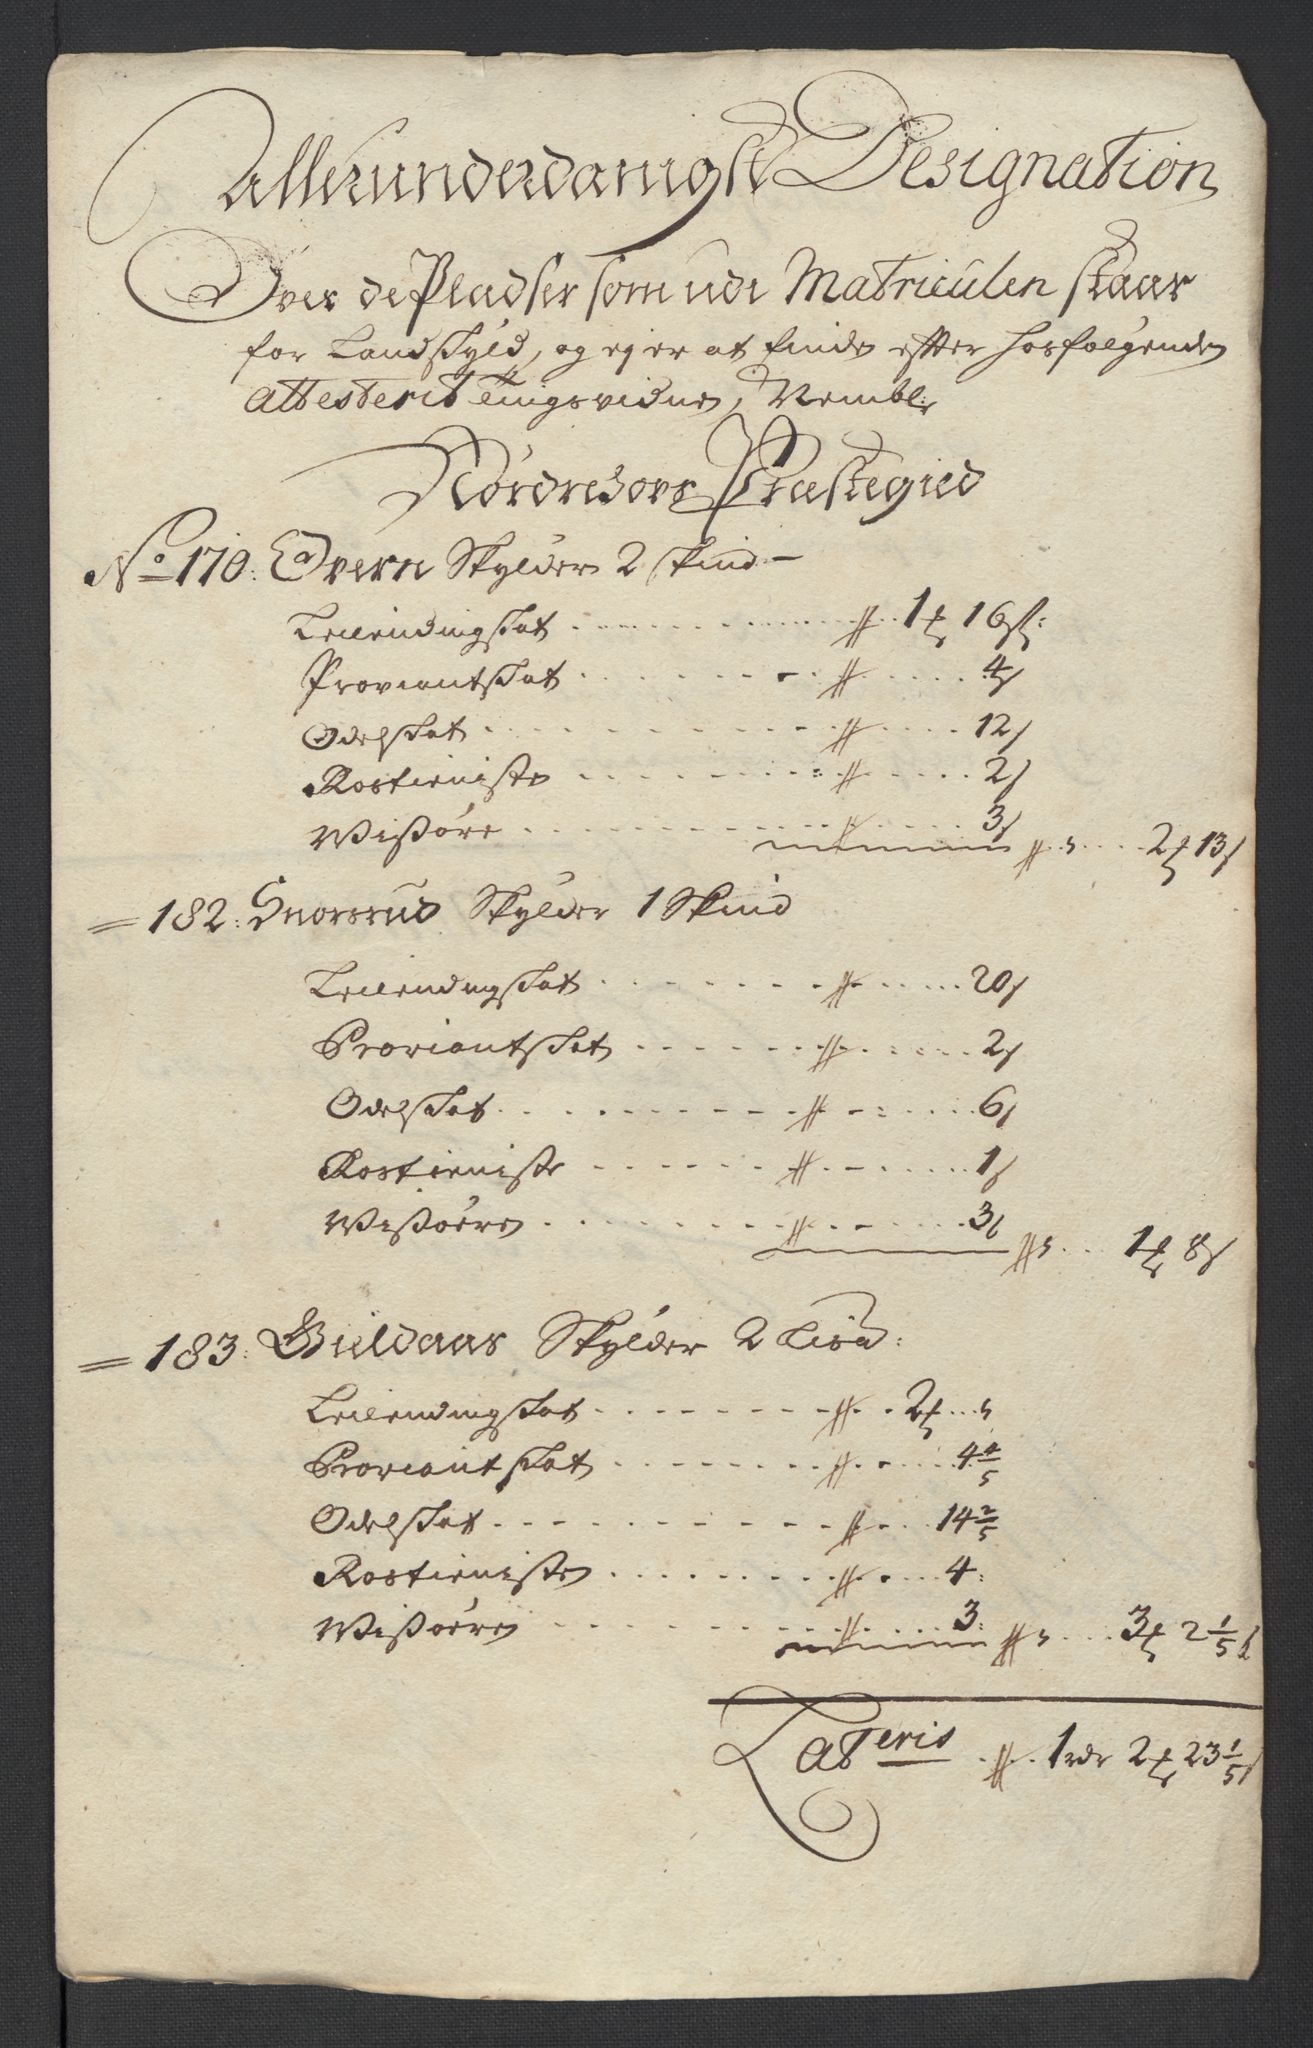 Allerunderdanigst Designation
Over de Pladser som udi Matriculen staar
for Landskyld, og ej er at finde efter hosfølgende
attesterit tingsvidne, Nembl:
Nordrehovs Præstegield
No 170: Qvern Skylder 2 skind
Leilendingskat 1 # 16 s:
Proviantskat 4 s
Odelskat 12 s
Rostieniste 2 s
Wisøre 3 s 2 # 13 s
= 182: Snorsrud Skylder 1 Skind
Leilendingskat 20 s
Proviantskat 2 s
Odelskat 6 s
Rostieniste 1 s
Wisøere 3 s 1 # 8 s
= 183: Guldaas Skylder 2 Lispd:
Leilendingskat 2 #
Proviantskat 4 4/5
Odelskat 14 2/5
Rostieniste 4:
Wisøere 3: 3 # 2 1/5 s
Lateris 1 rdr 2 # 23 1/5 s